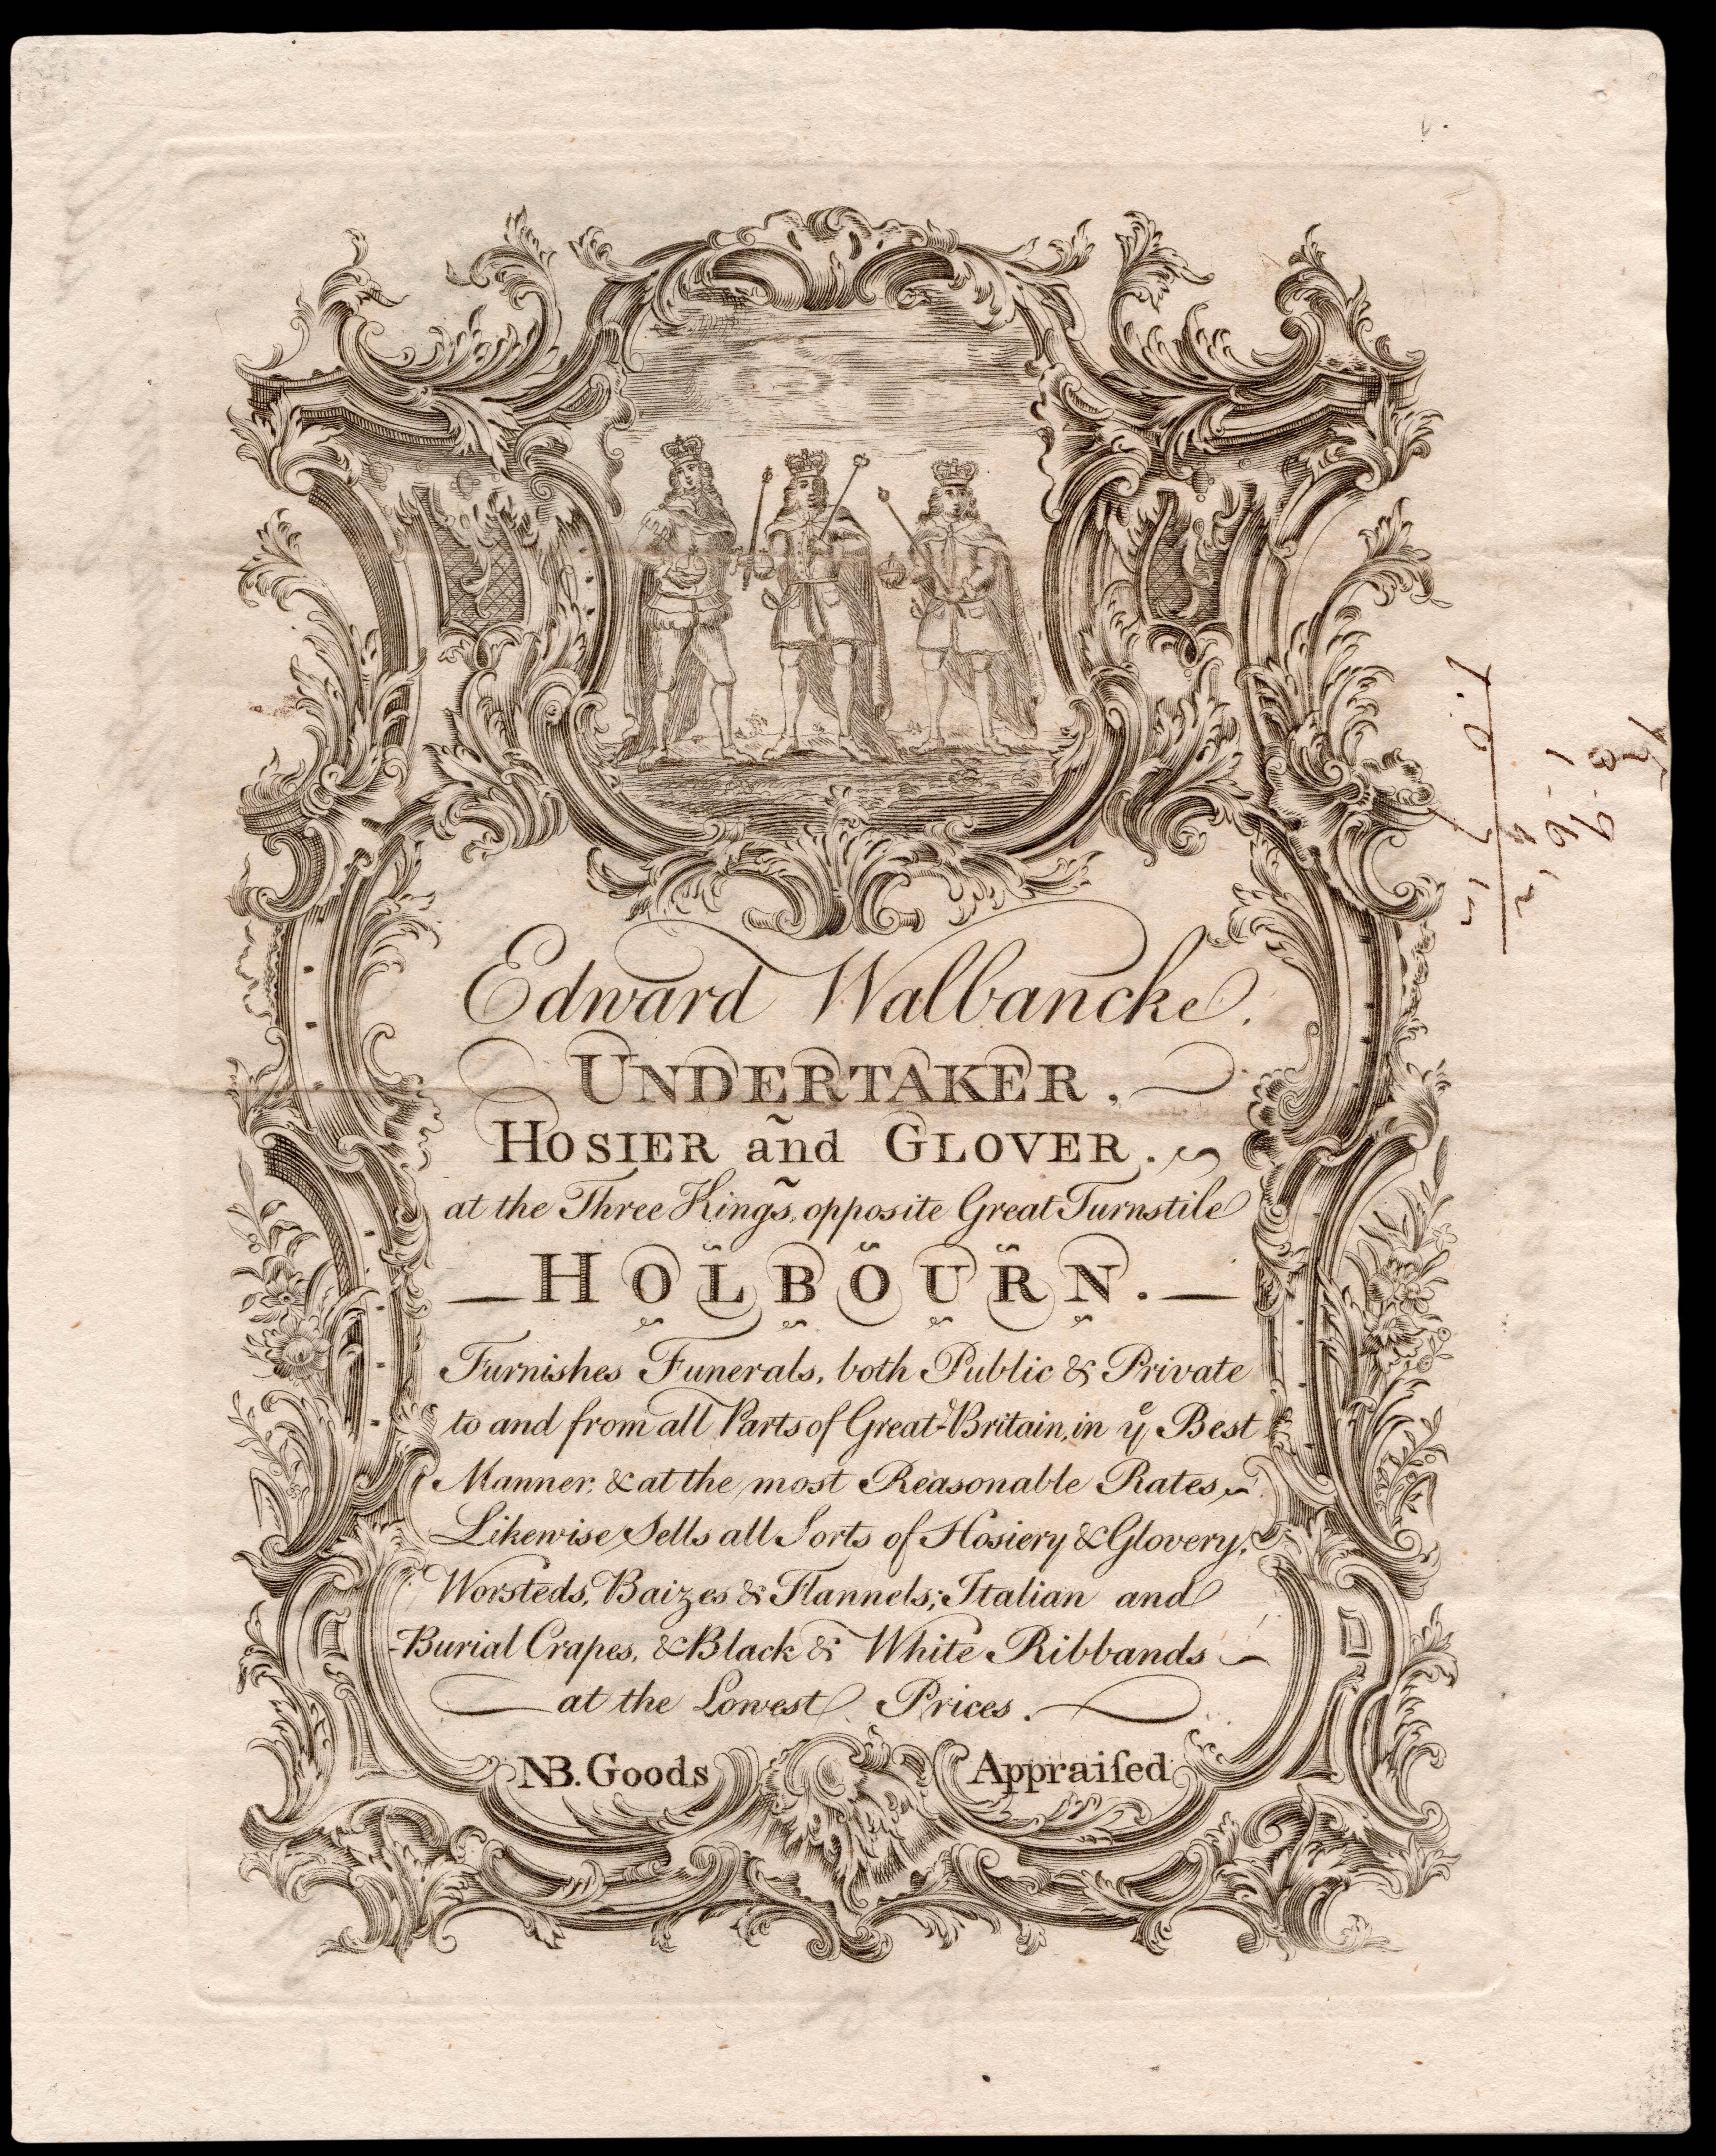 Edward Walbancke.
UNDERTAKER,
HOSIER and GLOVER.
at the Three Kings, opposite Great Turnstile
HOLBOURN.
Furnishes Funerals, both Public & Private
to and from all Parts of Great-Britain, in yͤ Best
Manner, & at the most Reasonable Rates
Likewise Sells all Sorts of Hosiery & Glovery,
Worsteds, Baizes & Flannels; Italian and
Burial Crapes, & Black & White Ribbands
at the Lowest Prices.
NB. Goods Appraiſed